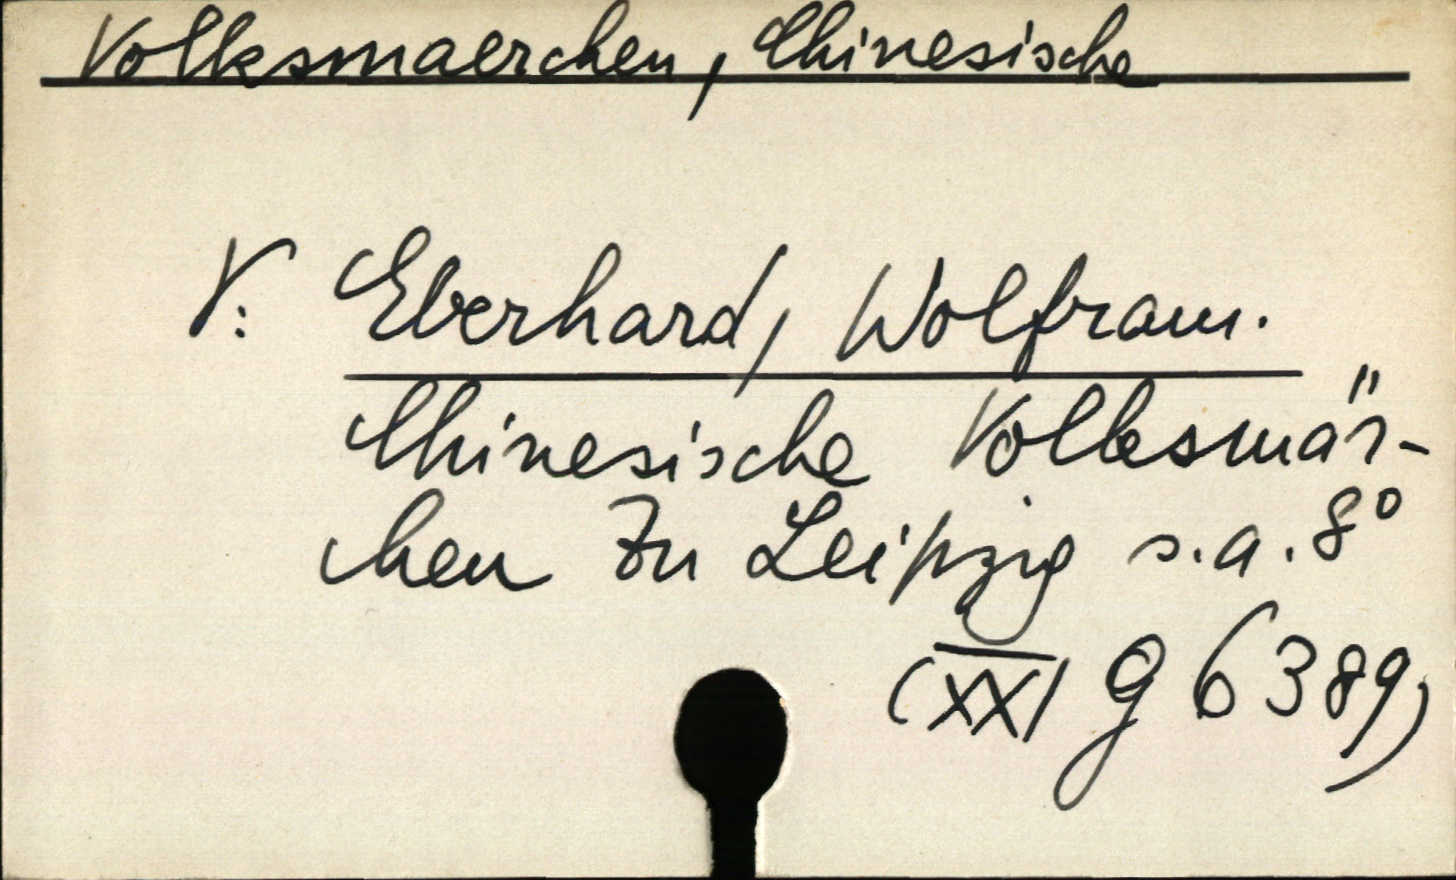 Volksmaerchen, Chinesische
V: Eberhard, Wolfram.
Chinesische Volksmär-
chen Zu Leipzig s.a. 8°
(XXI g 6389)